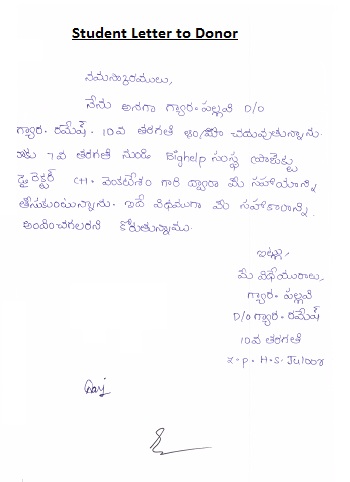 Student Letter to Donor
నమస్కారములు,
నేను అనగా గ్యార. పల్లవి D/o
గ్యార. రమేష్. 10వ తరగతి చదువుతున్నాను.
7వ తరగతి నుండి Bighelp సంస్థ
డైరెక్టర్ CH. వెంకటేశం గారి ద్వారా మీ సహాయాన్ని
తీసుకుంటున్నాను. ఇదే విధముగా మీ సహాకారాన్ని
అందించగలరని కోరుతున్నాము.
ఇట్లు,
మీ విధేయురాలు,
గ్యార. పల్లవి
D/o గ్యార. రమేష్
10వ తరగతి
Z.P.H.S. Juloor